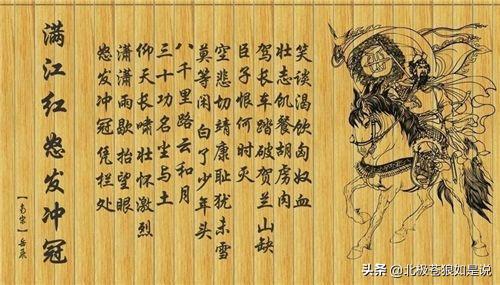 满江红 怒发冲冠
【南宋】岳飞
怒发冲冠凭栏处
潇潇雨歇抬望眼
仰天长啸壮怀激烈
三十功名尘与土
八千里路云和月
莫等闲白了少年头
空悲切靖康耻犹未雪
臣子恨何时灭
驾长车踏破贺兰山缺
壮志饥餐胡虏肉
笑谈渴饮匈奴血
头条 @北极苍狼如是说